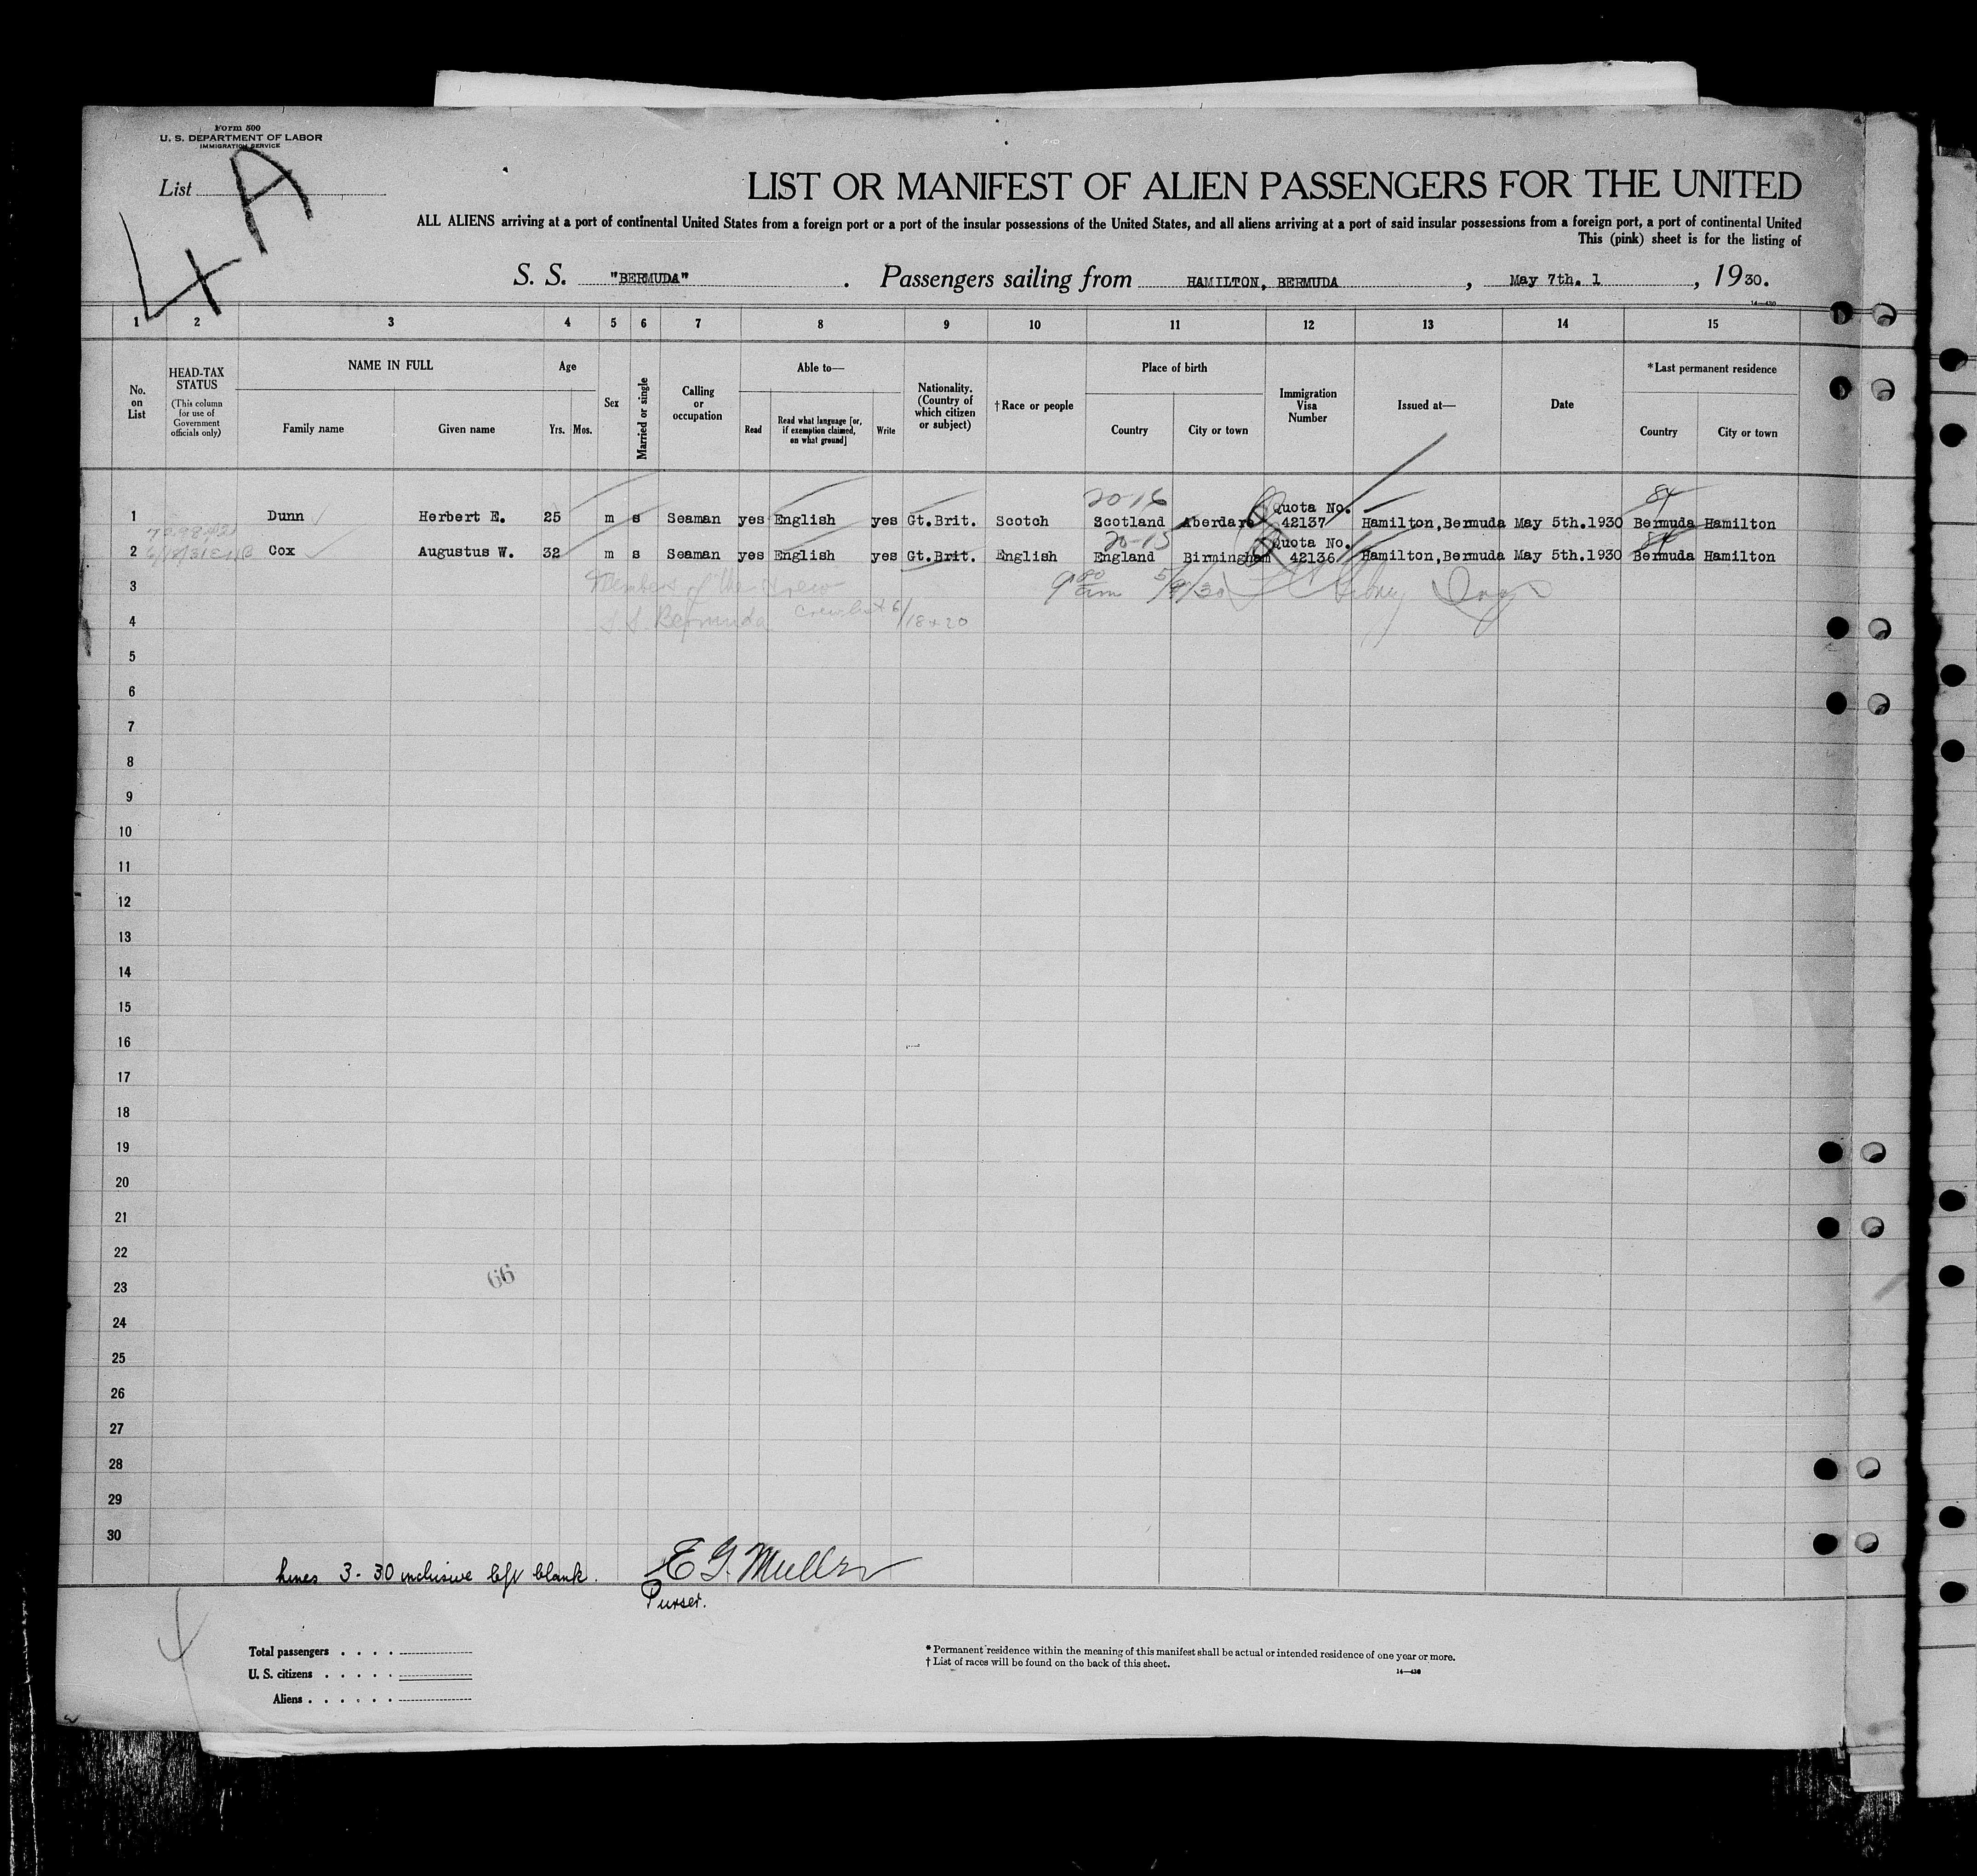 Form 500
U. S. DEPARTMENT OF LABOR
IMMIGRATION SERVICE
List
4 A
LIST OR MANIFEST OF ALIEN PASSENGERS FOR THE UNITED
ALL ALIENS arriving at a port of continental United States from a foreign port or a port of the insular possessions of the United States, and all aliens arriving at a port of said insular possessions from a foreign port, a port of continental United
This (pink) sheet is for the listing of
S. S. "BERMUDA". Passengers sailing from HAMILTON, BERMUDA, May 7th. 1, 1930.
14—430
1 2 3 4 5 6 7 8 9 10 11 12 13 14 15
No. on List
HEAD-TAX STATUS
(This column for use of Government officials only)
NAME IN FULL
Family name
Given name
Age
Yrs. Mos.
Sex
Married or single
Calling or occupation
Able to—
Read
Read what language [or, if exemption claimed, on what ground]
Write
Nationality. (Country of which citizen or subject)
†Race or people
Place of birth
Country
City or town
Immigration Visa Number
Issued at—
Date
*Last permanent residence
Country
City or town
20-16 84
1 Dunn Herbert E. 25 m s Seaman yes English yes Gt.Brit. Scotch Scotland Aberdare Quota No. 42137 Hamilton,Bermuda May 5th.1930 Bermuda Hamilton
20-15 84
2 Cox Augustus W. 32 m s Seaman yes English yes Gt.Brit. English England Birmingham Quota No. 42136 Hamilton,Bermuda May 5th.1930 Bermuda Hamilton
3 Members of the crew 9 00 am 5/9/30
4 S.S. Bermuda crew list 6/18+20
5
6
7
8
9
10
11
12
13
14
15
16
17
18
19
20
21
22
66
23
24
25
26
27
28
29
30
Lines 3-30 inclusive left blank. E G. Muller
Purser.
Total passengers
U. S. citizens
Aliens
* Permanent residence within the meaning of this manifest shall be actual or intended residence of one year or more.
† List of races will be found on the back of this sheet.
14—430